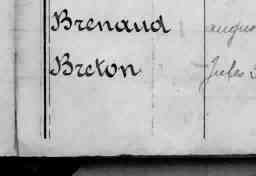 Brenaud augus
Breton Jules